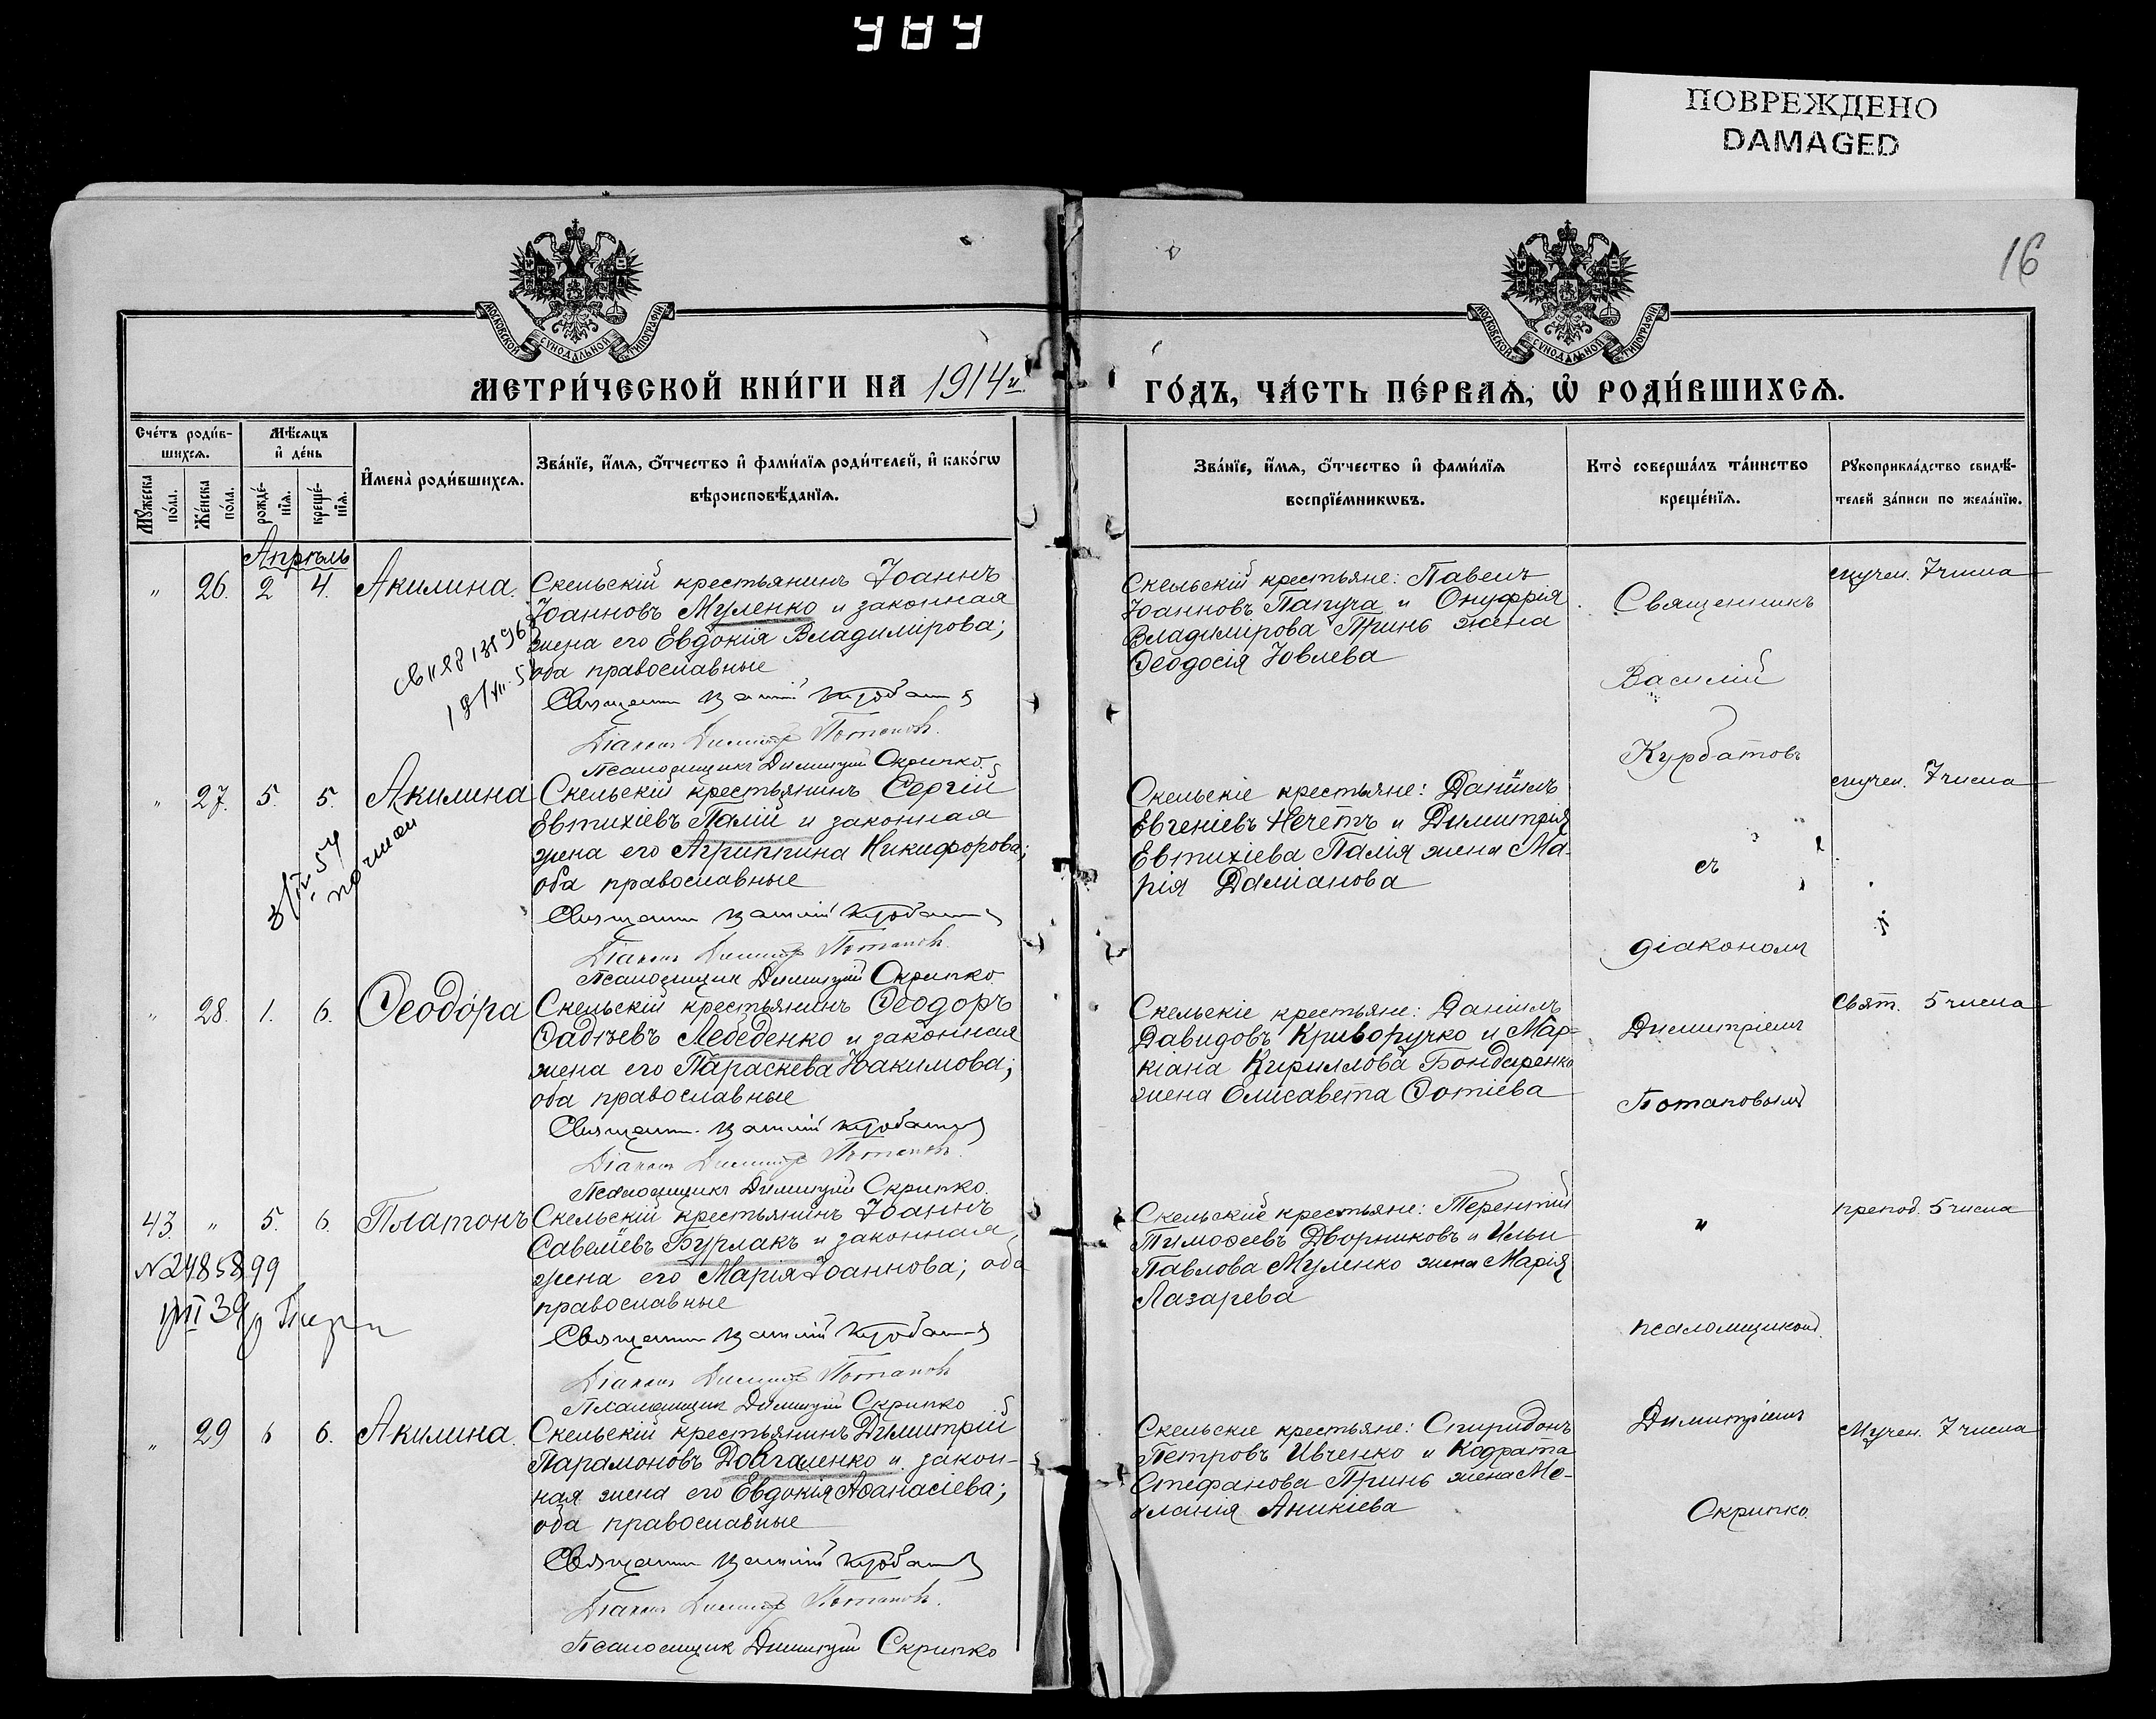 ПОВРЕЖДЕНО
DAMAGED
16
МОСКОВСКОЙ СУНОДАЛЬНОЙ ТИПОГРАФІИ
МОСКОВСКОЙ СУНОДАЛЬНОЙ ТИПОГРАФІИ
МЕТРИ́ЧЕСКОЙ КНИ́ГИ НА 1914й
ГО́ДЪ, ЧА́СТЬ ПЕ́РВАѦ, Ѽ РОДИ́ВШИХСѦ.
Сче́тъ роди́в-
шихсѧ.
Мѣ́сѧцъ
и҆ де́нь
Мꙋ́жеска
по́ла.
Же́нска
по́ла.
рожде́-
нїѧ.
креще́-
нїѧ.
И҆мена̀ роди́вшихсѧ.
Зва́нїе, и҆́мѧ, ѻ҆́тчество и҆ фами́лїѧ роди́телей, и҆ како́гѡ
вѣроисповѣ́данїѧ.
Зва́нїе, и҆́мѧ, ѻ҆́тчество и҆ фами́лїѧ
воспрїе́мникѡвъ.
Кто̀ соверша́лъ та́инство
креще́нїѧ.
Рꙋкоприкла́дство свидѣ́-
телей за́писи по жела́нїю.
Апрѣль
" 26. 2 4. Акилина.
Скельскій крестьянинъ Іоаннъ
Іоанновъ Муленко и законная
жена его Евдокія Владимірова;
оба православные
Священникъ Василій Курбатовъ
Діаконъ Димитрій Потаповъ.
Псаломщикъ Димитрій Скрипко.
Скельскій крестьяне: Павелъ
Іоанновъ Папуча и Онуфрія
Владимірова Гринь жена
Ѳеодосія Іовлева
мучен. 7 числа
" 27. 5. 5. Акилина
Скельскій крестьянинъ Сергій
Евтихіевъ Палій и законная
жена его Агриппина Никифорова;
оба православные
Священникъ Василій Курбатовъ
Діаконъ Димитрій Потаповъ.
Псаломщикъ Димитрій Скрипко.
Скельскіе крестьяне: Даніилъ
Евгеніевъ Нечетъ и Димитрія
Евтихіева Палія жена Ма-
рія Даміанова
мучен. 7 числа
" 28. 1. 6. Ѳеодора
Скельскій крестьянинъ Ѳеодоръ
Ѳадѣевъ Лебеденко и законная
жена его Параскева Іоакимова;
оба православные
Священникъ Василій Курбатовъ
Діаконъ Димитрій Потаповъ.
Псаломщикъ Димитрій Скрипко.
Скельскіе крестьяне: Даніилъ
Давидовъ Криворучко и Мар-
кіана Кириллова Бондаренко
жена Елисавета Ѳотіева
Свят. 5 числа
43. " 5. 6. Платонъ
№2485899
Скельскій крестьянинъ Іоаннъ
Савеліевъ Бурлакъ и законная
жена его Марія Іоаннова; оба
православные
Священникъ Василій Курбатовъ
Діаконъ Димитрій Потаповъ
Псаломщикъ Димитрій Скрипко
Скельскіе крестьяне: Терентій
Тимоѳеевъ Дворниковъ и Ильи
Павлова Муленко жена Марія
Лазарева
препод. 5 числа
" 29 6 6. Акилина.
Скельскій крестьянинъ Димитрій
Парамоновъ Довгаленко и закон-
ная жена его Евдокія Аѳанасіева;
оба православные
Священникъ Василій Курбатовъ
Діаконъ Димитрій Потаповъ.
Псаломщикъ Димитрій Скрипко
Скельскіе крестьяне: Спиридонъ
Петровъ Ивченко и Кодрата
Стефанова Гринь жена Ме-
ланія Аникіева
Мучен. 7 числа
Священникъ
Василій
Курбатовъ
съ
діакономъ
Димитріемъ
Потаповымъ
и
псаломщикомъ
Димитріемъ
Скрипко.